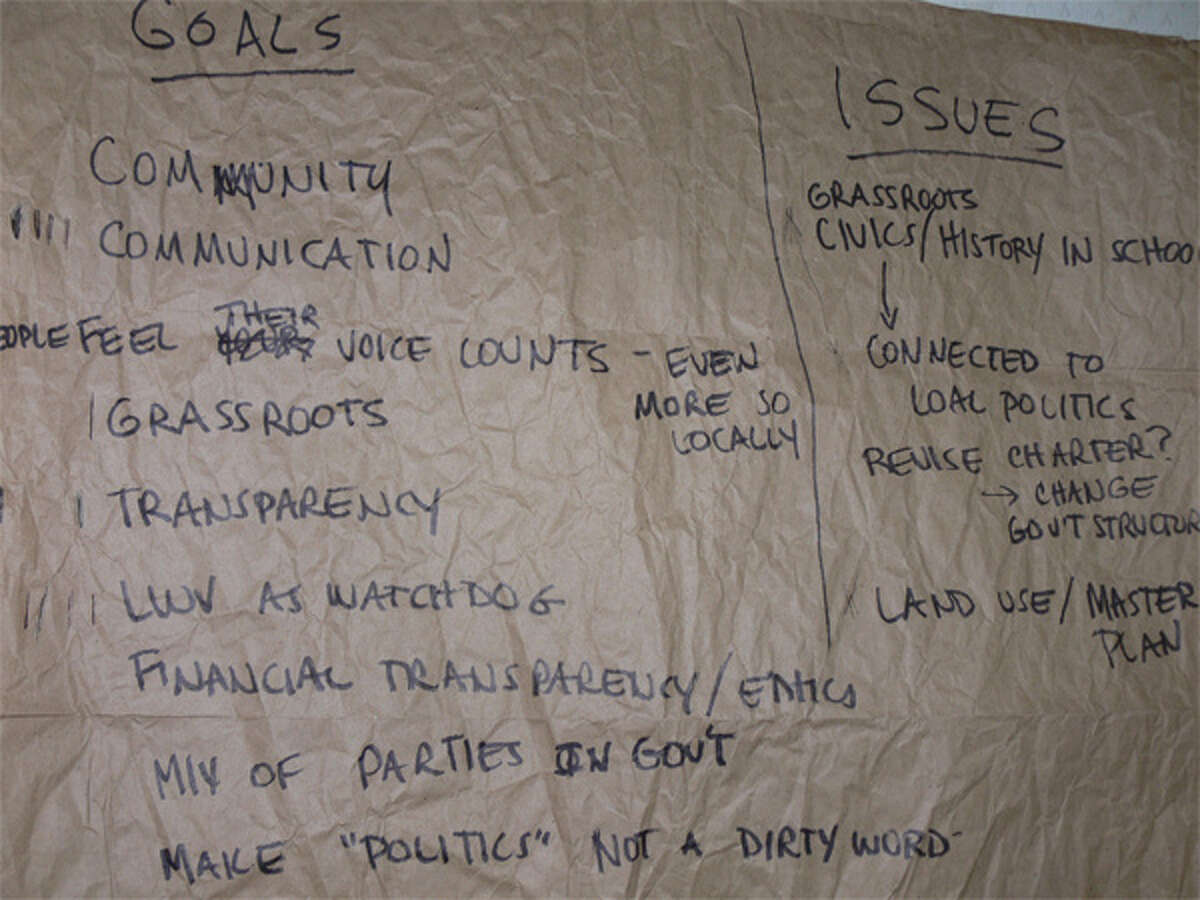 GOALS
COMMUNITY
COMMUNICATION
EOPLE FEEL THEIR VOICE COUNTS - EVEN
MORE SO
LOCALLY
GRASSROOTS
TRANSPARENCY
LWV AS WATCHDOG
FINANCIAL TRANSPARENCY/ETHICS
MIX OF PARTIES IN GOV'T
MAKE "POLITICS" NOT A DIRTY WORD
ISSUES
GRASSROOTS
CIVICS/HISTORY IN SCHOO
↓
CONNECTED TO
LOAL POLITICS
REVISE CHARTER?
→ CHANGE
GOV'T STRUCTUR
LAND USE/MASTER
PLAN